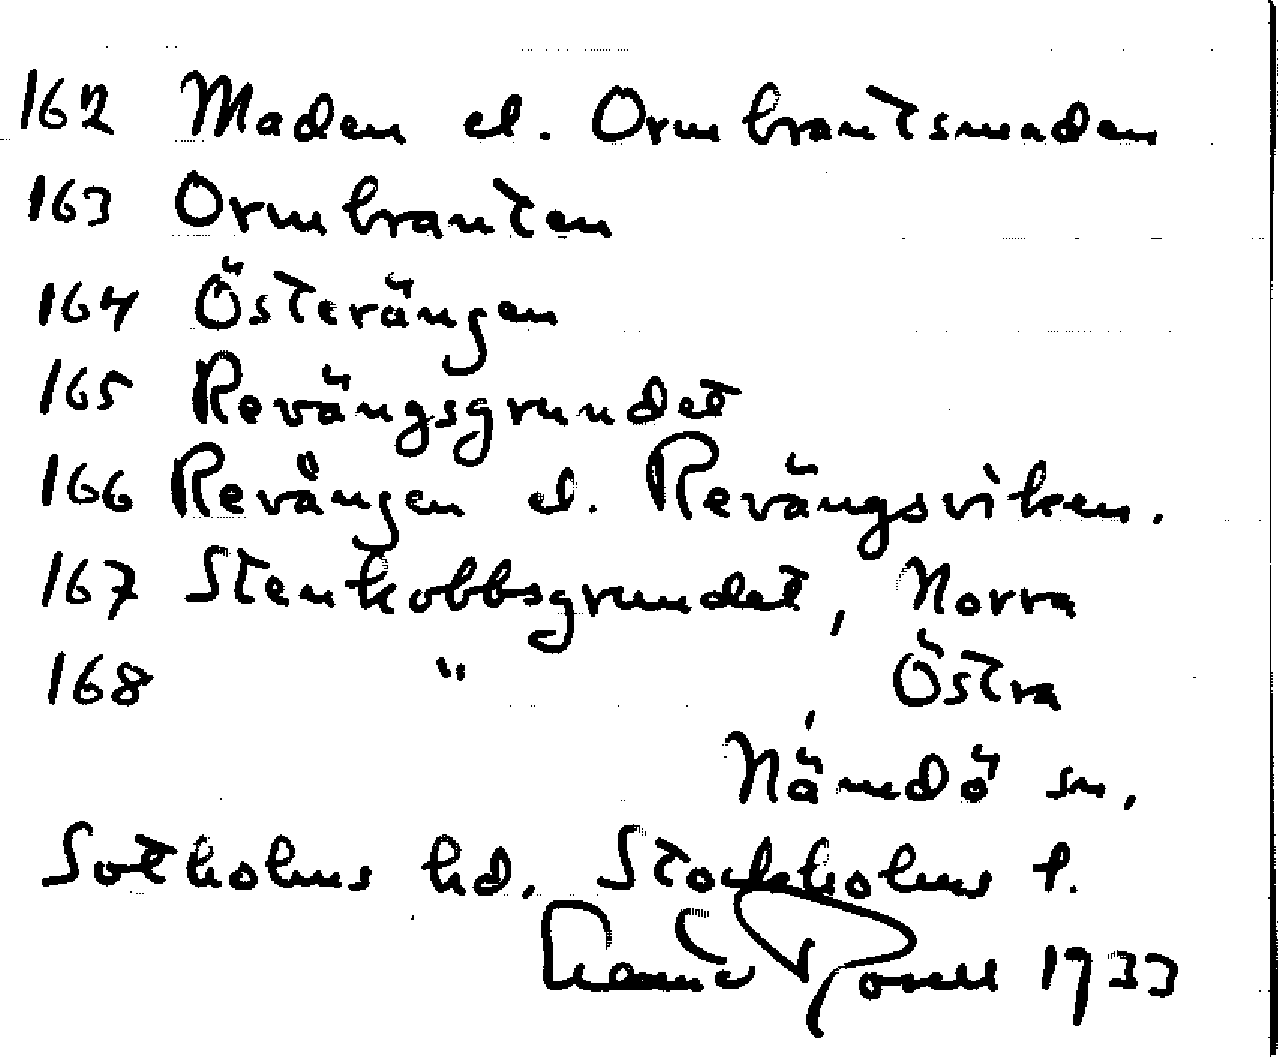 162 Maden el. Ormbrantsmaden
163 Ormbranten
164 Österängen
165 Revängsgrundet
166 Revången el. Revängsviken.
167 Stenkobbsgrundet, Norra
168 " , Östra
Nämdö sn,
Sotholms hd. Stockholms l.
1933